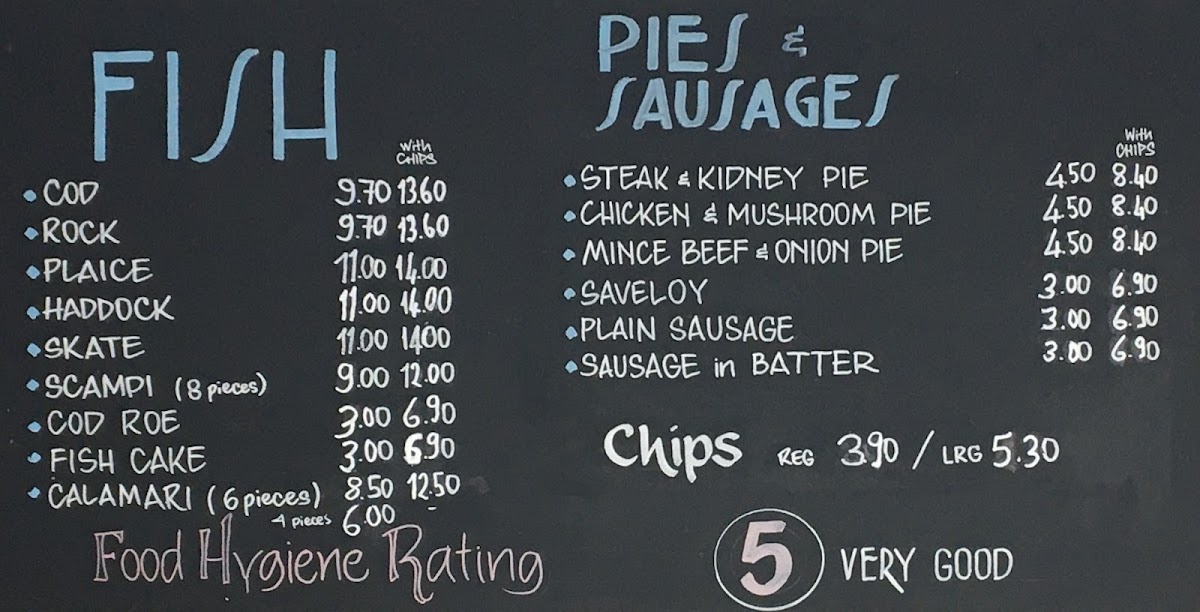 FISH
With
CHIPS
COD 9.70 13.60
ROCK 9.70 13.60
PLAICE 11.00 14.00
HADDOCK 11.00 14.00
SKATE 11.00 14.00
SCAMPI (8 pieces) 9.00 12.00
COD ROE 3.00 6.90
FISH CAKE 3.00 6.90
CALAMARI (6 pieces) 8.50 12.50
4 pieces 6.00 -
PIES &
SAUSAGES
With
CHIPS
STEAK & KIDNEY PIE 4.50 8.40
CHICKEN & MUSHROOM PIE 4.50 8.40
MINCE BEEF & ONION PIE 4.50 8.40
SAVELOY 3.00 6.90
PLAIN SAUSAGE 3.00 6.90
SAUSAGE in BATTER 3.00 6.90
Chips REG 3.90 / LRG 5.30
Food Hygiene Rating 5 VERY GOOD